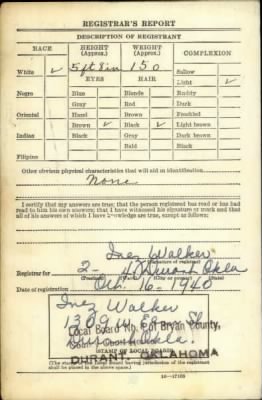 REGISTRAR'S REPORT
DESCRIPTION OF REGISTRANT
RACE HEIGHT (Approx.) WEIGHT (Approx.) COMPLEXION
White ✓ 5 ft 8 in 150 Sallow
EYES HAIR Light ✓
Negro Blue Blonde Ruddy
Gray Red Dark
Oriental Hazel Brown Freckled
Brown ✓ Black ✓ Light brown
Indian Black Gray Dark brown
Bald Black
Filipino
Other obvious physical characteristics that will aid in identification
None
I certify that my answers are true; that the person registered has read or has had
read to him his own answers; that I have witnessed his signature or mark and that
all of his answers of which I have knowledge are true, except as follows:
Inez Walker
(Signature of registrar)
Registrar for 2 Durant Okla
(Precinct) (State)
Date of registration Oct. 16 - 1940
Inez Walker
1309 W.
Local Board No. 1 of Bryan County,
County Court
Okla.
DURANT, OKLAHOMA
(STAMP OF LOCAL BOARD)
(The stamp of the Local Board having jurisdiction of the registrant
shall be placed in the above space.)